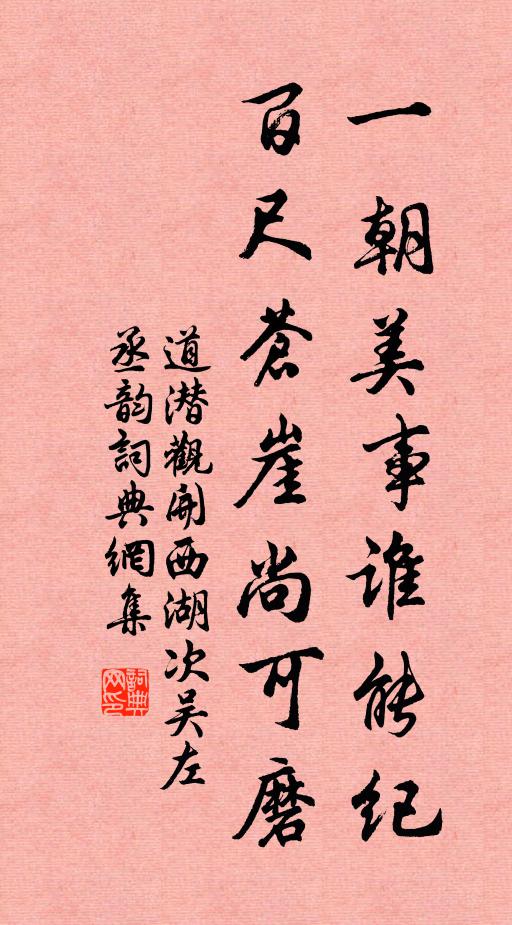 一朝美事谁能纪
百尺苍崖尚可磨
道潜觀開西湖次吴左
丞韵詞典網集
詞典网印